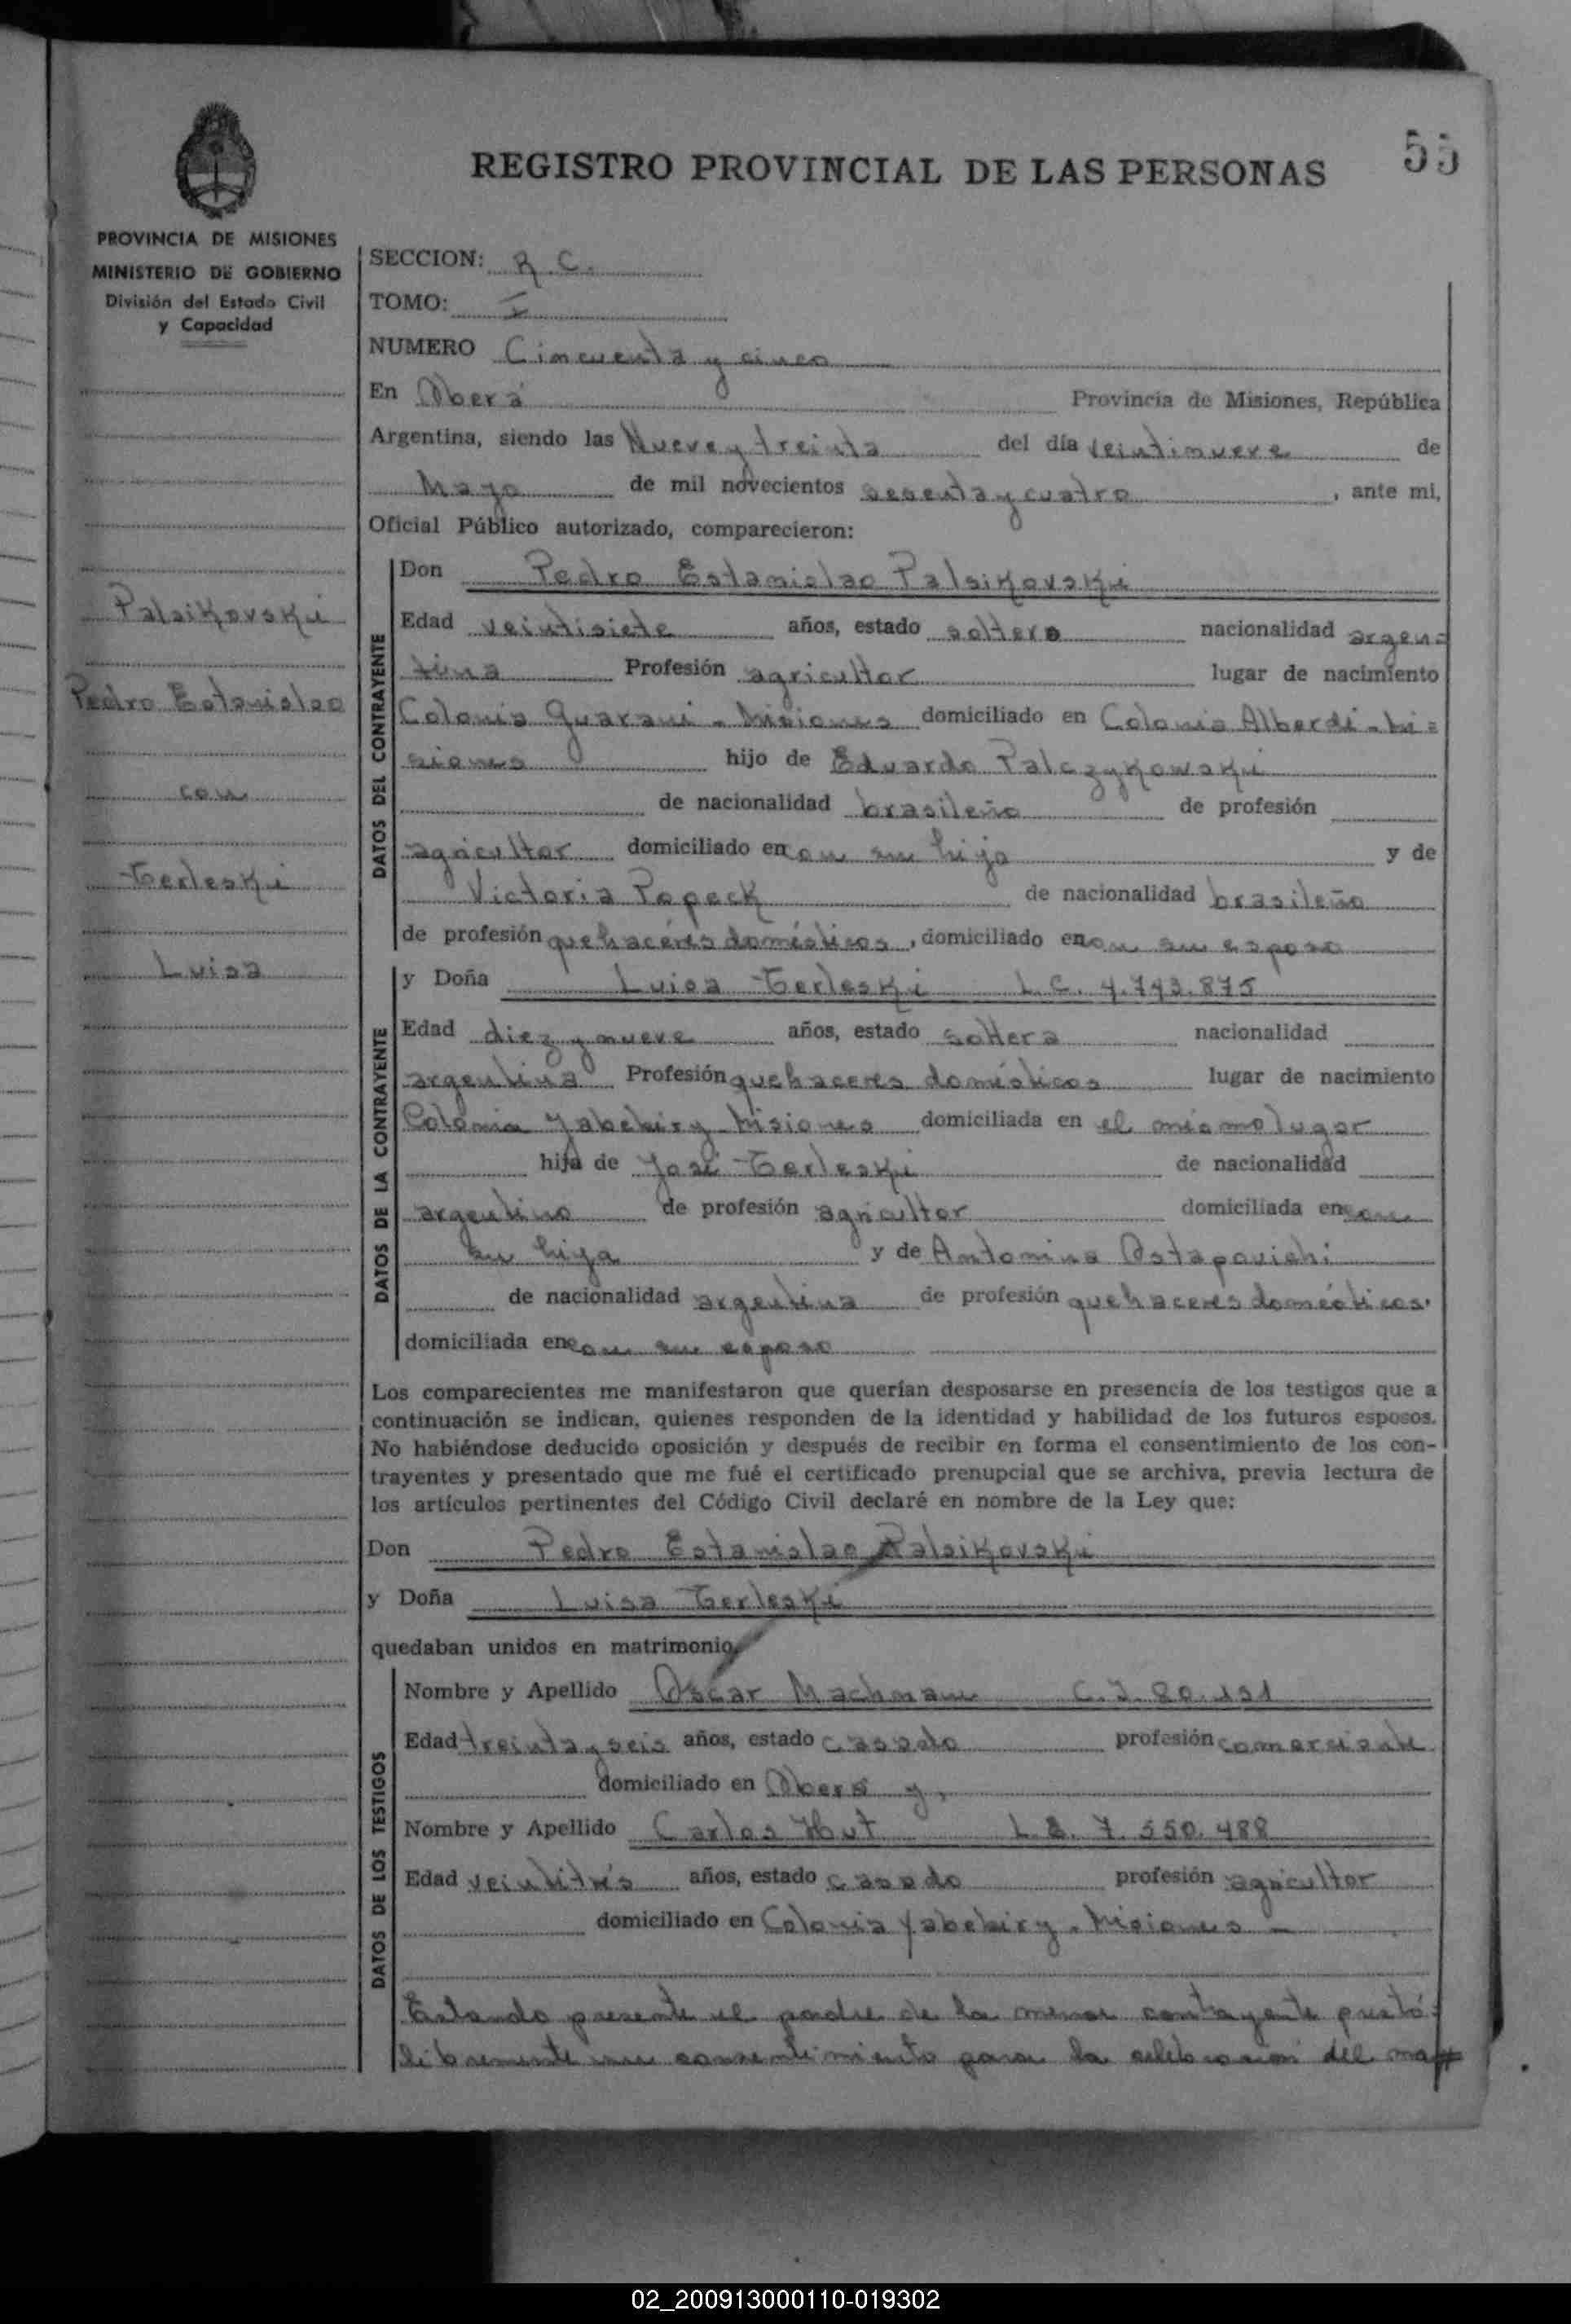 55
REGISTRO PROVINCIAL DE LAS PERSONAS
PROVINCIA DE MISIONES
MINISTERIO DE GOBIERNO
División del Estado Civil
y Capacidad
Palsikovski
Pedro Estanislao
con
Terleski
Luisa
SECCION: R. C.
TOMO: I
NUMERO Cincuenta y cinco
En Oberá Provincia de Misiones, República
Argentina, siendo las Nueve y treinta del día veintinueve de
Mayo de mil novecientos sesenta y cuatro, ante mi,
Oficial Público autorizado, comparecieron:
DATOS DEL CONTRAYENTE
Don Pedro Estanislao Palsikovski
Edad veintisiete años, estado soltero nacionalidad argen=
tina Profesión agricultor lugar de nacimiento
Colonia Guarani - Misiones domiciliado en Colonia Alberdi - Mi=
siones hijo de Eduardo Palczykowski
de nacionalidad brasileño de profesión
agricultor domiciliado en con su hijo y de
Victoria Popeck de nacionalidad brasileña
de profesión quehacéres domésticos, domiciliado en con su esposo
DATOS DE LA CONTRAYENTE
y Doña Luisa Terleski L.C. 4.743.875
Edad diez y nueve años, estado soltera nacionalidad
argentina Profesión quehaceres domésticos lugar de nacimiento
Colonia Yabebiry Misiones domiciliada en el mismo lugar
hija de José Terleski de nacionalidad
argentino de profesión agricultor domiciliada en con
su hija y de Antonina Ostapovichi
de nacionalidad argentina de profesión quehaceres domésticos.
domiciliada en con su esposo
Los comparecientes me manifestaron que querían desposarse en presencia de los testigos que a
continuación se indican, quienes responden de la identidad y habilidad de los futuros esposos.
No habiéndose deducido oposición y después de recibir en forma el consentimiento de los con-
trayentes y presentado que me fué el certificado prenupcial que se archiva, previa lectura de
los artículos pertinentes del Código Civil declaré en nombre de la Ley que:
Don Pedro Estanislao Palsikovski
y Doña Luisa Terleski
quedaban unidos en matrimonio,
DATOS DE LOS TESTIGOS
Nombre y Apellido Oscar Machmann C.I. 80.191
Edad treinta y seis años, estado casado profesión comerciante
domiciliado en Oberá y,
Nombre y Apellido Carlos Hut L.E. 7.550.488
Edad veintitrés años, estado casado profesión agricultor
domiciliado en Colonia Yabebiry - Misiones -
Estando presente el padre de la menor contrayente prestó
libremente su consentimiento para la celebración del ma
02_200913000110-019302